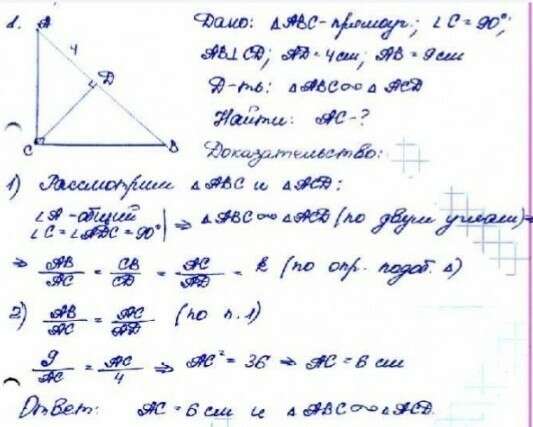 1.
A
4
D
C
B
Дано: △ABC - прямоуг.; ∠C = 90°;
AB⊥CD; AD = 4 см; AB = 9 см
Д-ть: △ABC ∾ △ACD
Найти: AC - ?
Доказательство:
1) Рассмотрим △ABC и △ACD:
∠A - общий
∠C = ∠ADC = 90° | ⇒ △ABC ∾ △ACD (по двум углам) ⇒
⇒ AB/AC = CB/CD = AC/AD = k (по опр. подоб. △)
2) AB/AC = AC/AD (по п. 1)
9/AC = AC/4 ⇒ AC² = 36 ⇒ AC = 6 см
Ответ: AC = 6 см и △ABC ∾ △ACD.